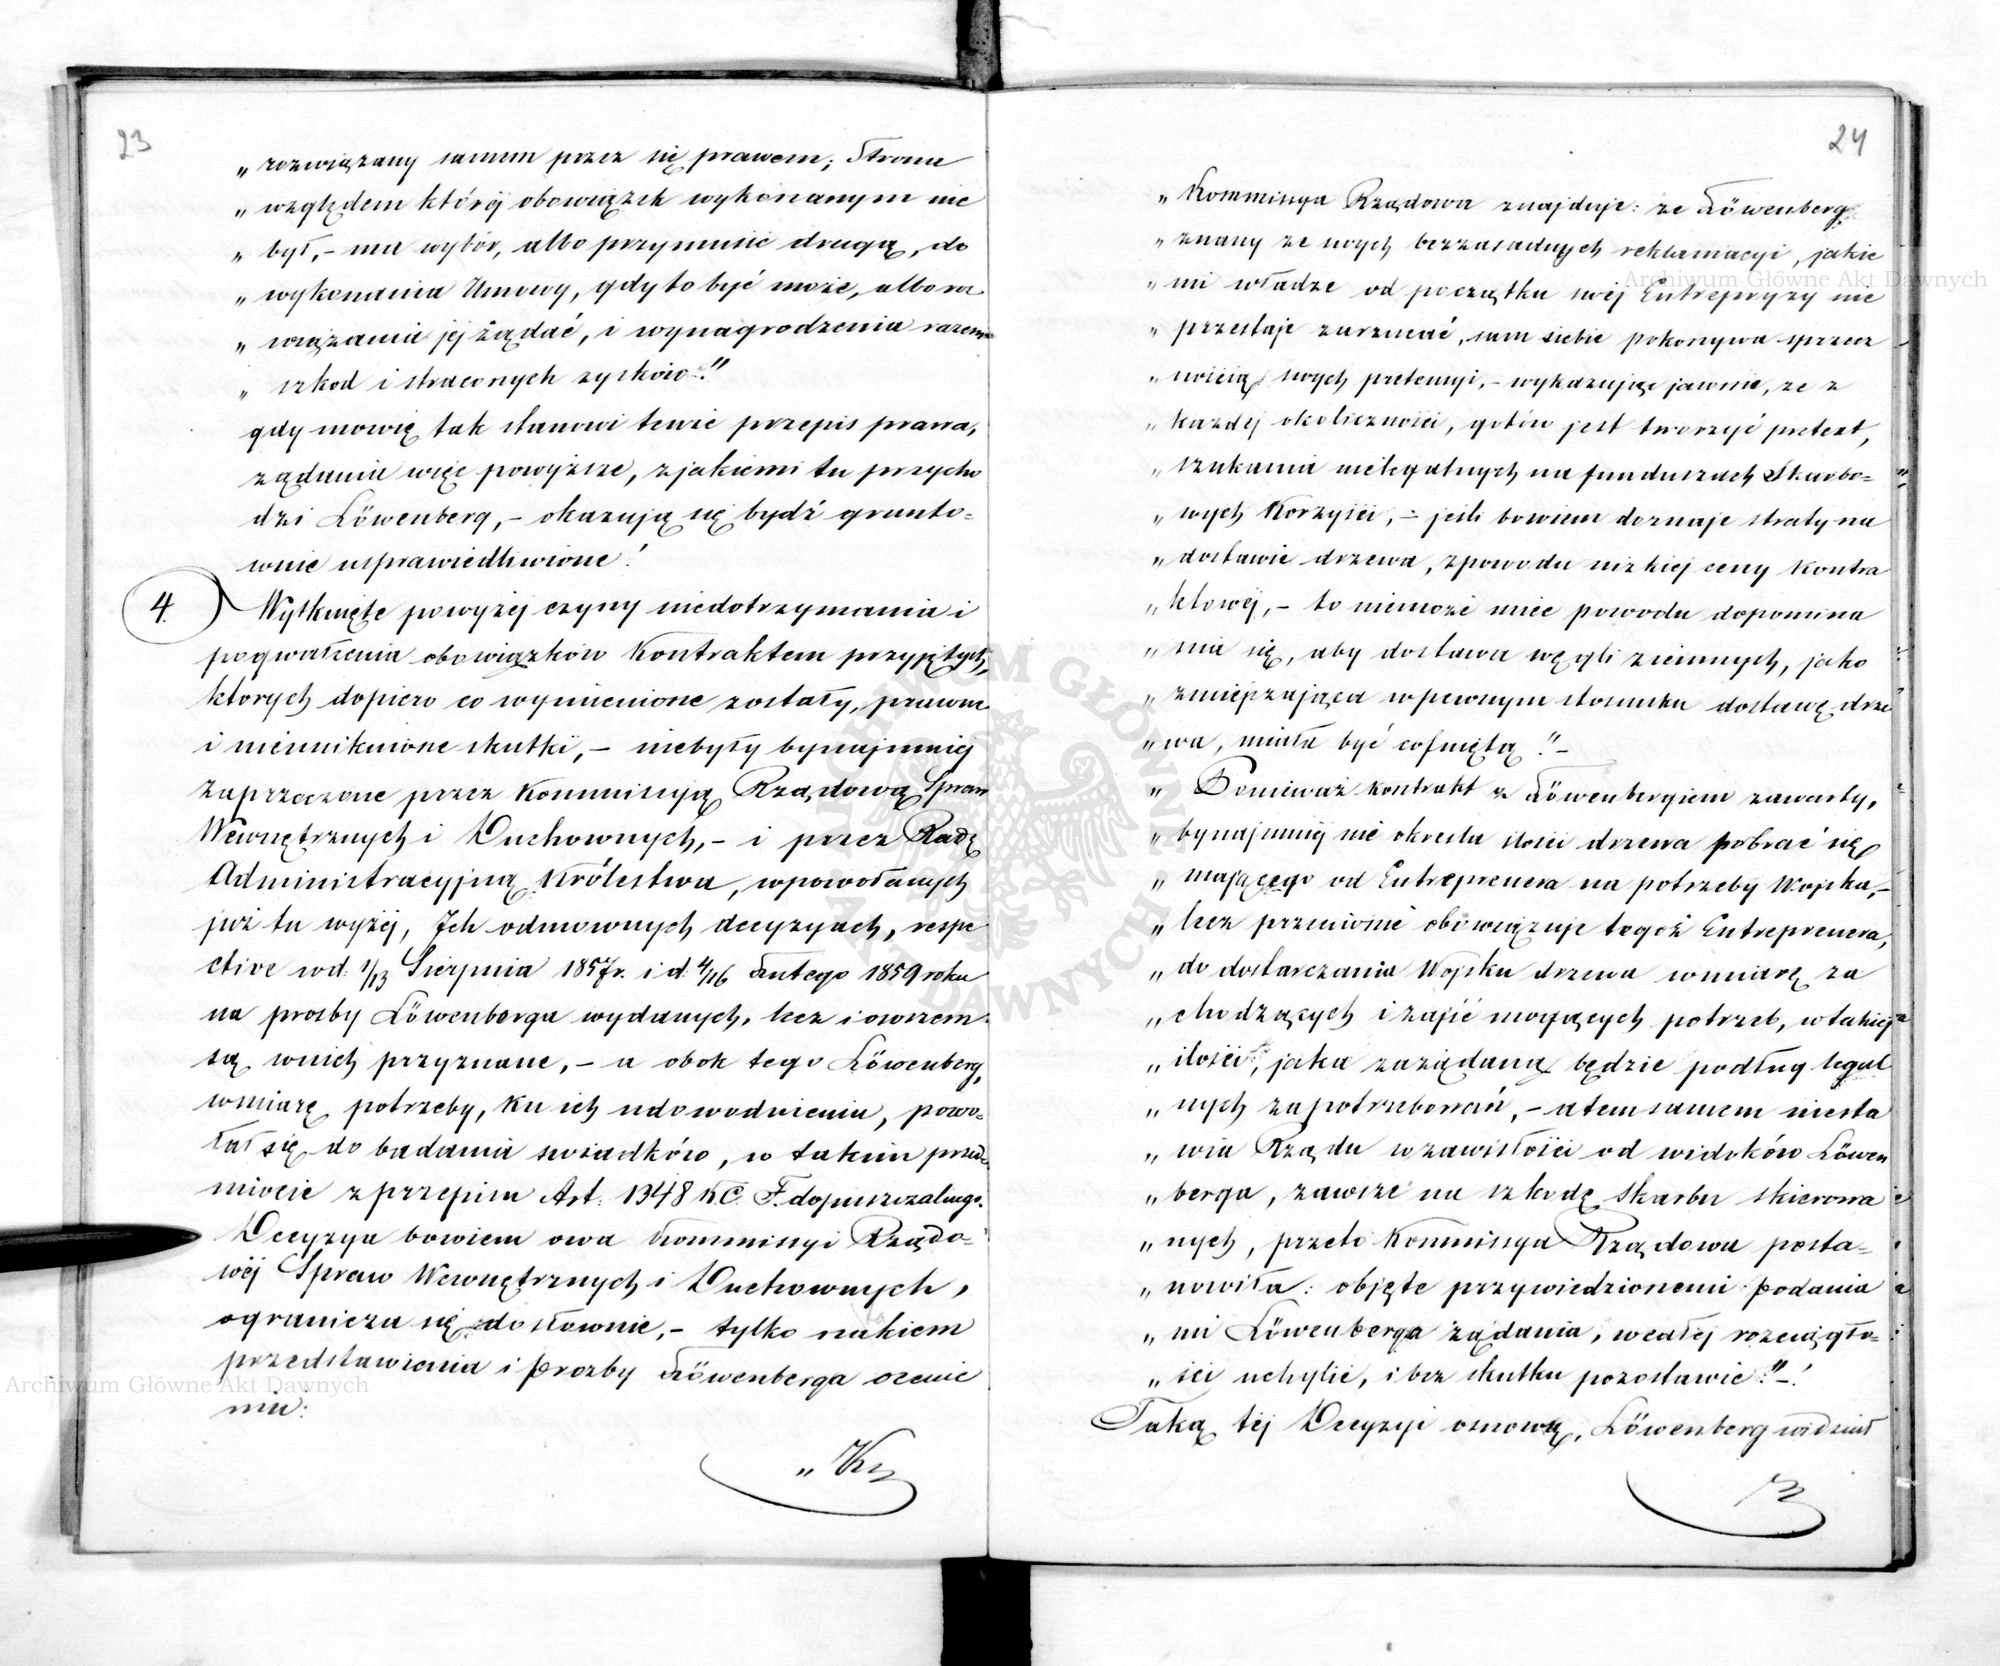 23
„ rozwiązany samem przez się prawem; Strona
„ względem której obowiązek wykonanym nie
„ był, – ma wybór, albo przymusić drugą, do
„ wykonania Umowy, gdy to być może, albo roz
„ wiązania jej żądać, i wynagrodzenia razem
„ szkod i straconych zysków."
gdy mowię tak stanowi tenże przepis prawa,
żądania więc powyższe, z jakiemi tu przycho
dzi Löwenberg, – okazują się bydź grunto=
wnie usprawiedliwione!
4. Wytknięte powyżej czyny niedotrzymania i
pogwałcenia obowiązków Kontraktem przyjętych,
ktorych dopiero co wymienione zostały, prawne
i nieuniknione skutki, – niebyły bynajmniej
zaprzeczone przez Kommissyją Rządową Spraw
Wewnętrznych i Duchownych, – i przez Radę
Administracyjną Królestwa, w powołanych
już tu wyżej, Ich odmownych decyzyach, respe
ctive w d. 1/13 Sierpnia 1857 r. i d. 4/16 Lutego 1859 roku
na prosby Löwenberga wydanych, lecz i owszem
są w nich przyznane, – a obok tego Löwenberg,
w miarę potrzeby, ku ich udowodnieniu, powo=
łał się do badania swiadków, w takim przed
miocie z przepisu Art. 1348 K.C.F. dopuszczalnego.
Decyzya bowiem owa Kommissyi Rządo=
wéj Spraw Wewnętrznych i Duchownych,
ogranicza się dosłownie, – tylko na kiem
przedstawienia i prozby Löwenberga ocenie
niu:
„ Ko
24
„ Kommissya Rządowa znajduje: że Löwenberg
„ znany ze swych bezzasadnych reklamacyi, jakie
„ mi władze od początku swéj Entrepryzy nie
„ przestaje zarzucać, sam siebie pokonywa sprzecz
„ nością swych pretensyi, – wykazując jawnie, że z
„ każdej okoliczności, gotów jest tworzyć pretext,
„ szukania nielegalnych na funduszach Skarbo=
„ wych Korzyści, – jeśli bowiem doznaje straty na
„ dostawie drzewa, z powodu nizkiej ceny Kontra
„ ktowéj, – to niemoże miec powodu dopomina
„ nia się, aby dostawa węgli ziemnych, jako
„ zmniejszająca w pewnym stosunku dostawę drze
„ wa, miała być cofniętą." –
„ Ponieważ kontrakt z Löwenbergiem zawarty,
„ bynajmniej nie okresla ilości drzewa pobrać się
„ mającego od Entreprenera na potrzeby Wojska, –
„ lecz przeciwnie obowiązuje tegoż Entreprenera,
„ do dostarczania Wojsku drzewa w miarę za
„ chodzących i zajść mogących potrzeb, w takiej
„ ilości, jaka zażądaną będzie podług legal
„ nych zapotrzebowań, – a tem samem niesta
„ wia Rządu w zawisłości od widoków Löwen
„ berga, zawsze na szkodę Skarbu skierowa
„ nych, przeto Kommissya Rządowa posta=
„ nowiła: objęte przywiedzionemi podania
„ mi Löwenberga żądania, w całéj rozciągło=
„ ści uchylić, i bez skutku pozostawić." – !
Taką téj Decyzyi osnową, Löwenberg widział
Archiwum Główne Akt Dawnych
Archiwum Główne Akt Dawnych
ARCHIWUM GŁÓWNE AKT DAWNYCH